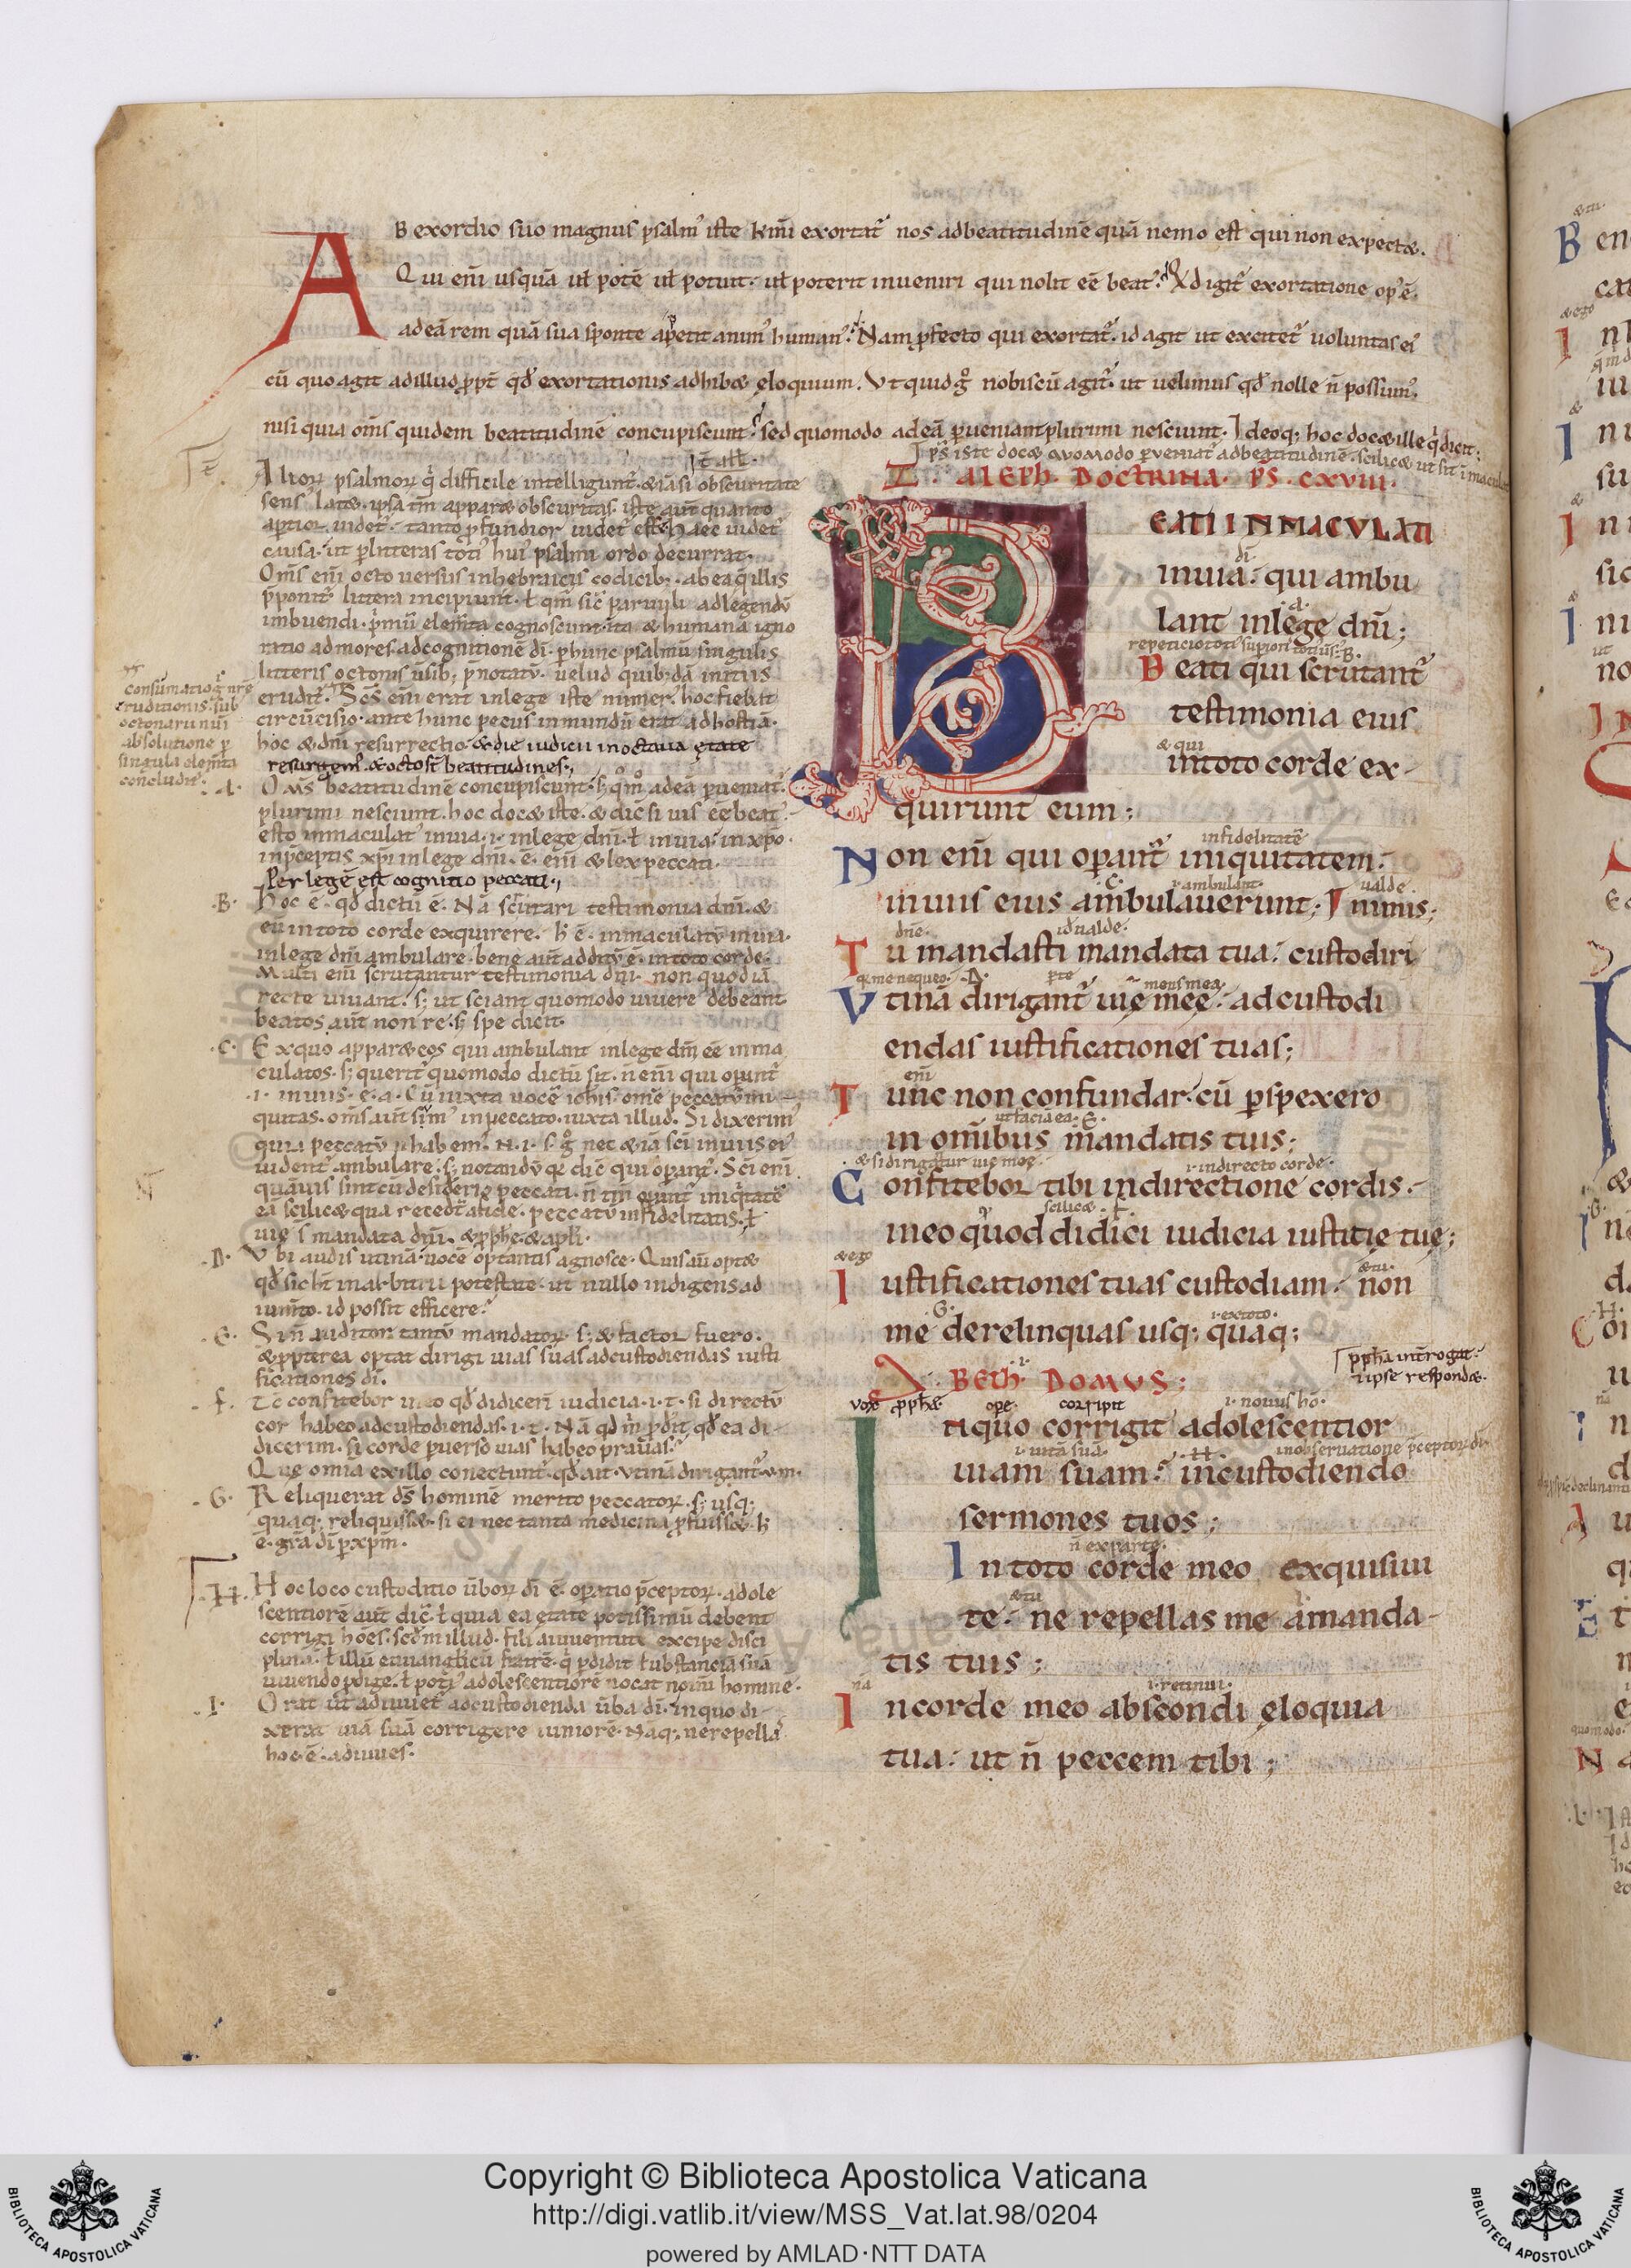 AB exordio suo magnus psalm᾽ iste kmi exortat᾽ nos ad beatitudinē quā nemo est qui non expectæ.
Qui eni᷑ usquā ul potē ul potuit· ul poterit inueniri qui nolit eē beat᾽
ad eā rem quā sua sponte appetit anim᾽ human᾽: Nam profecto qui exortat᾽· id agit ut excitet᾽ uoluntas ei᾽
cū quo agit ad illud propt̄ qd̄ exortationis adhibæ eloquium. Vt quid gͦ nobiscū agit᾽· ut uelimus qd̄ nolle n̄ possum᾽·
nisi quia om̄s quidem beatitudinē concupiscunt: sed quomodo ad eā perueniant plurimi nesciunt· Ideoq; hoc docæ ille qͥ dicit:
ps̄ iste docæ quomodo perueniat᾽ ad beatitudinē· scilicæ ut sit
ALEPH· DOCTRINA· PS· CXVIII·
BEATI INMACVLATI
in uia· qui ambu
lant in lege dn̄i;
Beati qui scrutant᾽
testimonia eius
& qui
in toto corde ex-
quirunt eum;
infidelitatē
Non eni᷑ qui operant᾽ iniquitatem·
in uiis eius ambulauerunt; nimis;
ualde·
dn̄e· id ualde·
Tu mandasti mandata tua· custodiri
Vtinā dirigant᾽ uię meę· ad custodi
endas iustificationes tuas;
Tunc non confundar· cū perspexero
ut faciā ea· E·
in omnibus mandatis tuis;
& si dirigantur uię meę· i· in directo corde·
Confitebor tibi in directione cordis·
scilicæ· f·
meo quod didici iudicia iustitię tuę;
& ego & tu·
Iustificationes tuas custodiam· non
G· i· ex toto·
me derelinquas usq; quaq;
propħa introgat·
& ipse respondæ·
BETH· DOMVS;
uox prophæ ope· corripit i· nouus hō·
In quo corrigit adolescentior
i· uitā suā· H· in obseruatione p̄ceptor̄ di·
uiam suam· in custodiendo
sermones tuos;
n̄ ex parte·
In toto corde meo exquisiui
& tu
te· ne repellas me a manda-
tis tuis;
i· retinui·
In corde meo abscondi eloquia
tua· ut n̄ peccem tibi;
Altor̄ psalmor̄ qͥ difficile intelligunt᾽· & iāsi obscuritate
sens᾽ latæ· ipsa tm̄ apparæ obscuritas· iste aut̄ quanto
aptior uidet᾽· tanto profundior uidet᾽ esse· Haec uidet᾽
causa· ut per litteras toti᾽ hui᾽ psalmi ordo decurrat·
Om̄s eni᷑ octo uersus in hebraicis codicib; ab ea qͥ illis
p̄ponit᾽ littera incipiunt· ł qm̄ sic paruuli ad legendū
imbuendi· primū elem̄ta cognoscunt· ita & humanā igno
ratio ad mores ad cognitionē di· per hunc psalmū singulis
litteris octonis uersib; p̄notatū· uelud quib; dā initiis
erudit᾽· Scs̄ eni᷑ erat in lege iste numer᾽· hoc fiebat
circūcisio· ante hunc pecus inmundū erat ad hostiā·
hoc & dn̄i resurrectio· & die iudicii in octaua ętate
resurgem᾽· & octo st̄ beatitudines·;
consūmatio gͦ nr̄e
eruditionis· sub
octonaru nūi
absolutione per
singula elem̄ta
concludit᾽·
A· Om̄s beatitudinē concupiscunt· s; qͦmͦ ad eā perueniat᾽
plurimi nesciunt· hoc docæ iste· & dic̄ si uis eē beat᾽·
esto inmaculat᾽ in uia· i· in lege dn̄i· ł in uia· in xp̄o·
in p̄ceptis xp̄i in lege dn̄i· ē· eni᷑ & lex peccati·
Per legē est cognitio peccati·;
B· Hoc ē· qd̄ dictū ē· Nā scrutari testimonia dn̄i· &
eū in toto corde exquirere· h̄ ē· inmaculatū in uia·
in lege dn̄i ambulare· bene aut̄ additū ē· in toto corde·
Multi eni᷑ scrutantur testimonia dn̄i· non quod iā
recte uiuant· s; ut sciant quomodo uiuere debeant
beatos aut̄ non re· s; spe dicit·
C· Ex quo apparæ eos qui ambulant in lege dn̄i eē inma
culatos· s; querit᾽ quomodo dictū sit· n̄ eni᷑ qui operant᾽
i· in uiis· e· a· Cū iuxta uocē ioħis· omē peccatū ini-
quitas· om̄s aut̄ sum᾽ in peccato· iuxta illud· Si dixerim᾽
quia peccatū n̄ habem᾽· N· i· s· gͦ nec & iā sci in uiis ei᾽
uident᾽ ambulare· s; notandū qd̄ dic̄ qui operant᾽· Sci eni᷑
quāuis sint cū desiderio peccati· n̄ tm̄ operant᾽ iniqͥtatē
ea scilicæ qua recedit᾽ a fide· peccatū infidelitatis· ł
uię s̄ mandata dn̄i· & prophe· & apli·
D· Vbi audis utinā· uocē optantis agnosce·
uniro· id possit efficere·
E· Si n̄ auditor tantū mandator̄· s; & factor fuero·
& propterea optat dirigi uias suas ad custodiendas iusti
ficationes di·
F· Tc̄ confitebor qd̄ didiceri iudicia· i· t· si directū
cor habeo ad custodiendas· i· t·
dicerim· si corde peruerso uias habeo prauas·
Que omia ex illo conectunt᾽· qd̄ ait· Vtinā dirigant᾽· u· m·
G· Reliquerat ds̄ hominē merito peccator̄· s; usq;
quaq; reliquissæ· si ei nec tanta medicina profuissæ· h̄
ē· gr̄a di per xp̄m·
H· Hoc loco custoditio uerbor̄ di ē· operatio p̄ceptor̄· adole
scentiorē aut̄ dic̄· ł quia ea ętate potissimū debent
corrigi hōes· scdm illud· fili a iuuentute excipe disci
plinā· ł illū euuangelicū fratrē· qͥ perdidit substanciā suā
uiuendo prodige·
I· Orat ut̄ adiuuet᾽ ad custodienda uerba di· in quo di-
xerat uiā suā corrigere iuniorē· Naq; ne repellas
hoc ē· adiuues·
Copyright © Biblioteca Apostolica Vaticana
http://digi.vatlib.it/view/MSS_Vat.lat.98/0204
powered by AMLAD·NTT DATA
BIBLIOTECA APOSTOLICA VATICANA
BIBLIOTECA APOSTOLICA VATICANA